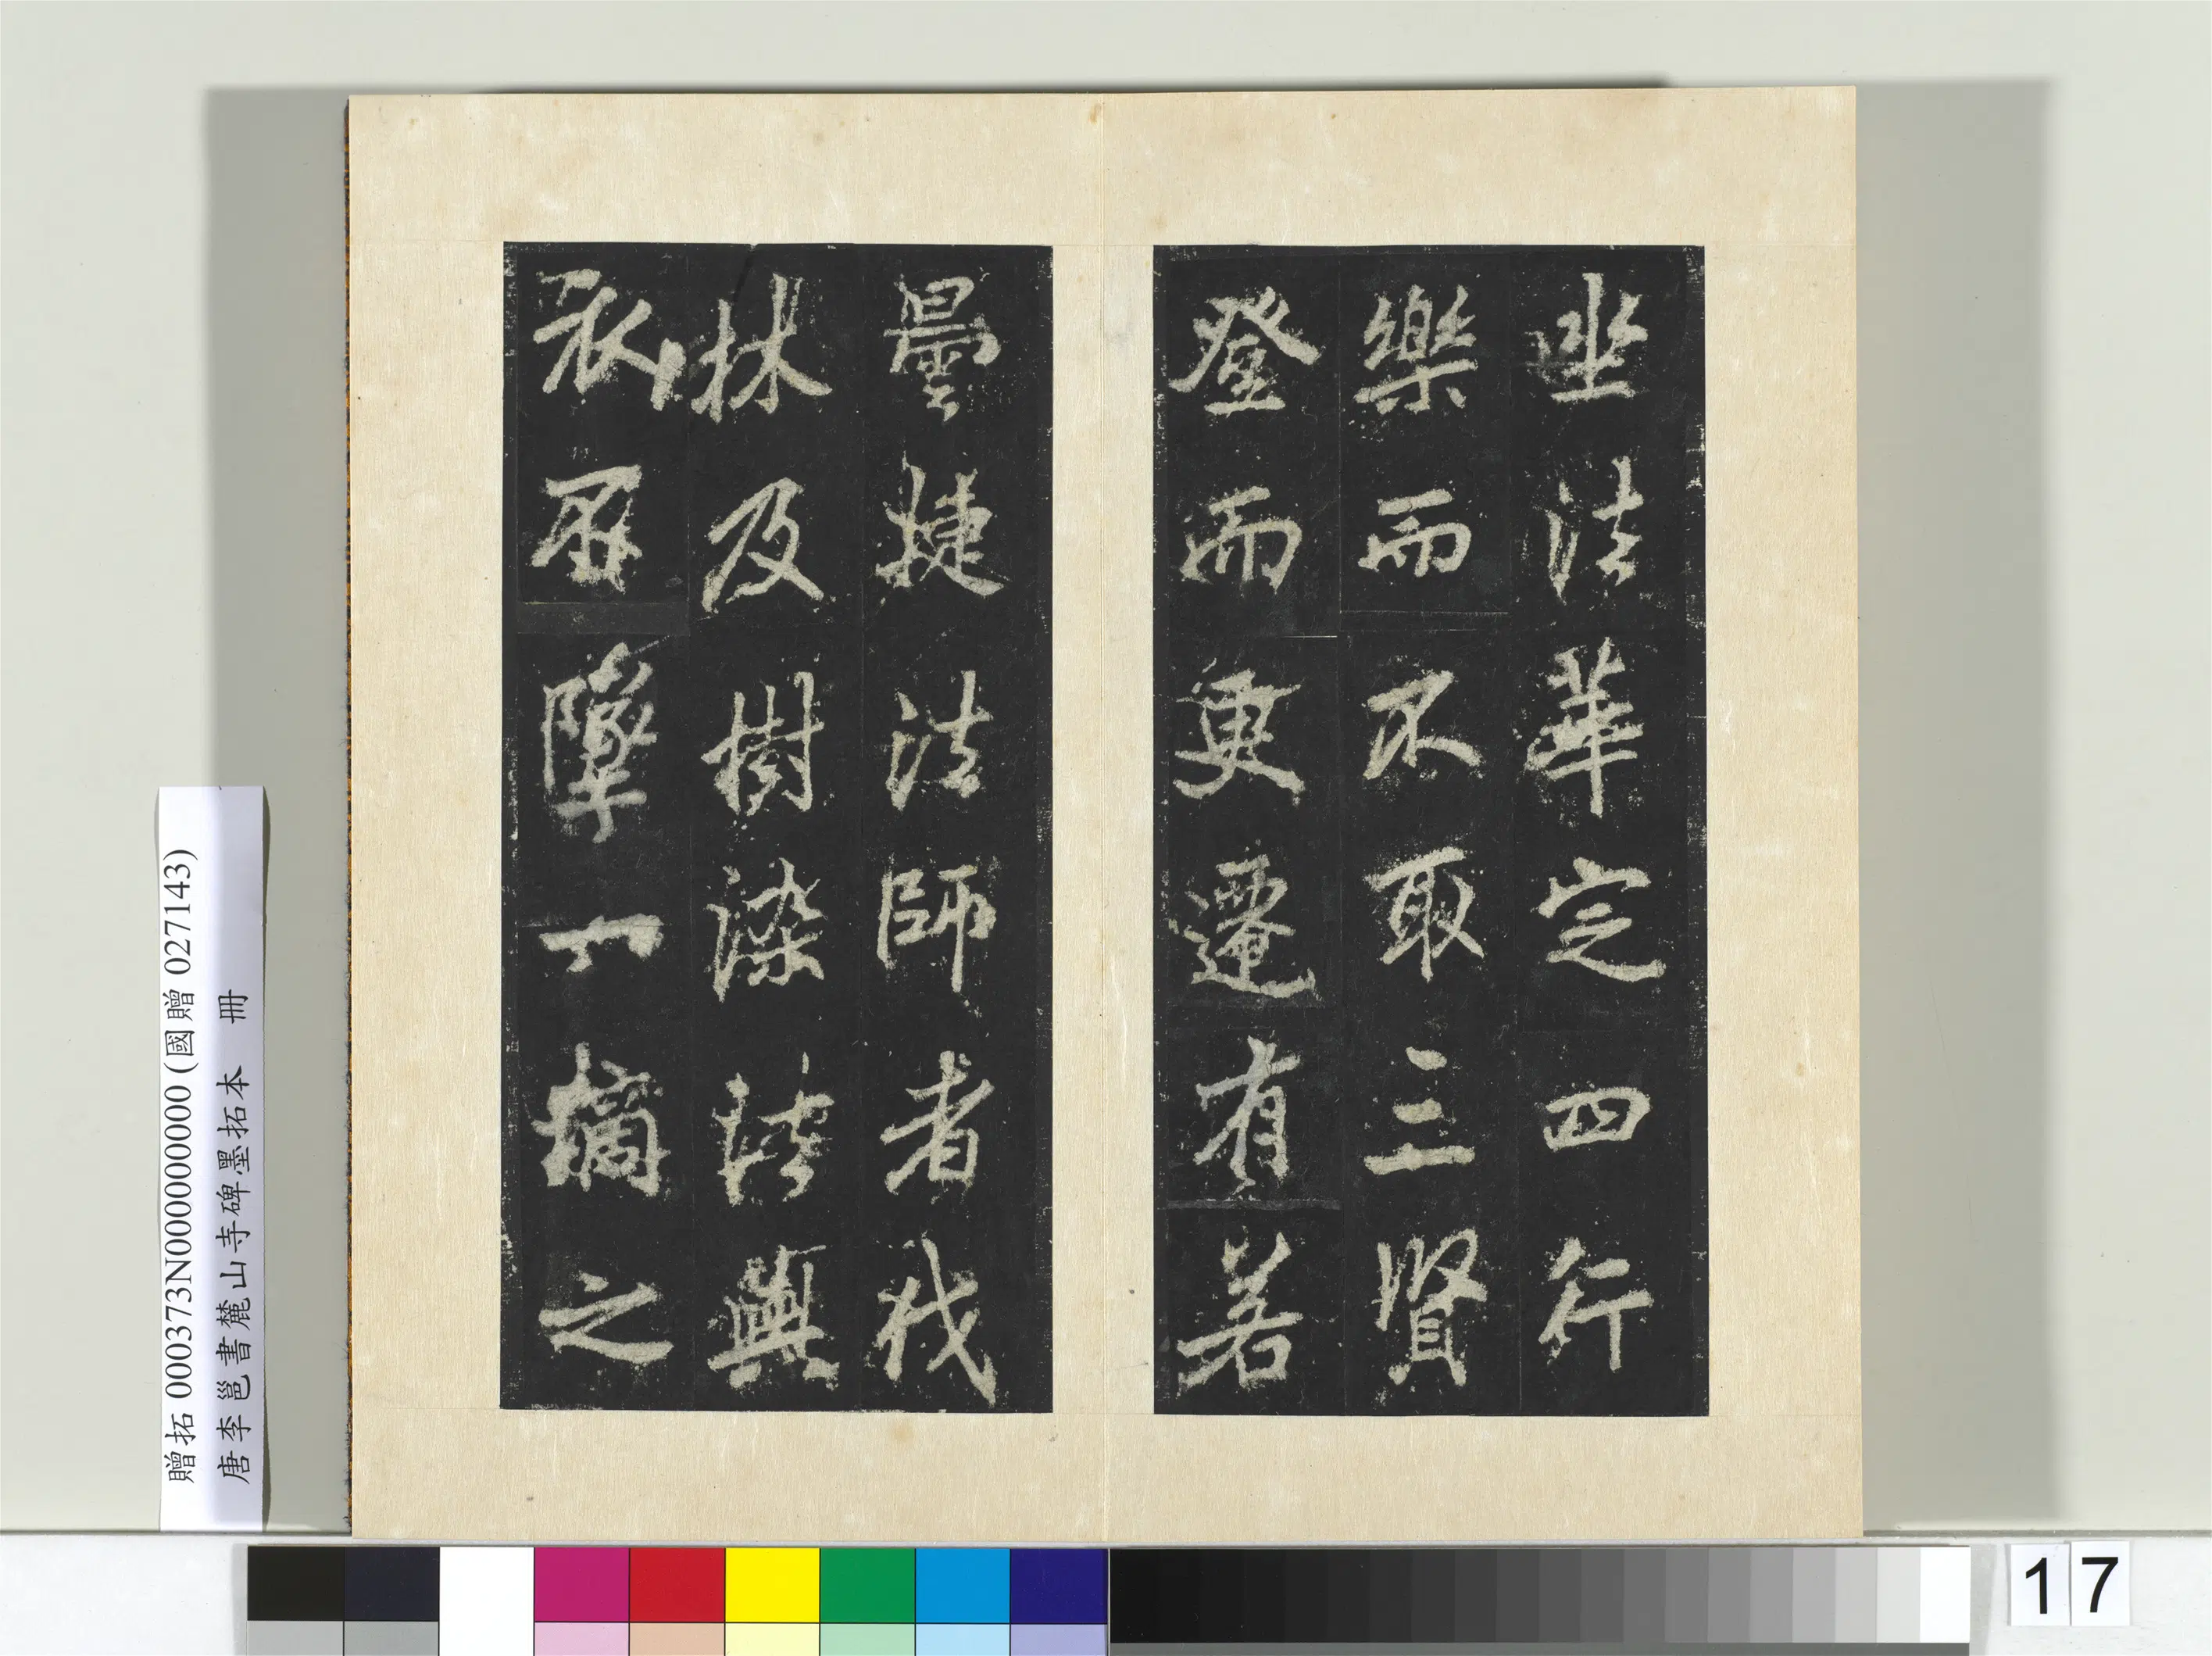 坐法華定四行
樂而不取三賢
登而更遷有若
曇捷法師者伐
林及樹染法與
衣屏之
贈拓 000373N000000000 (國贈 027143)
唐李邕書麓山寺碑墨拓本 冊
17